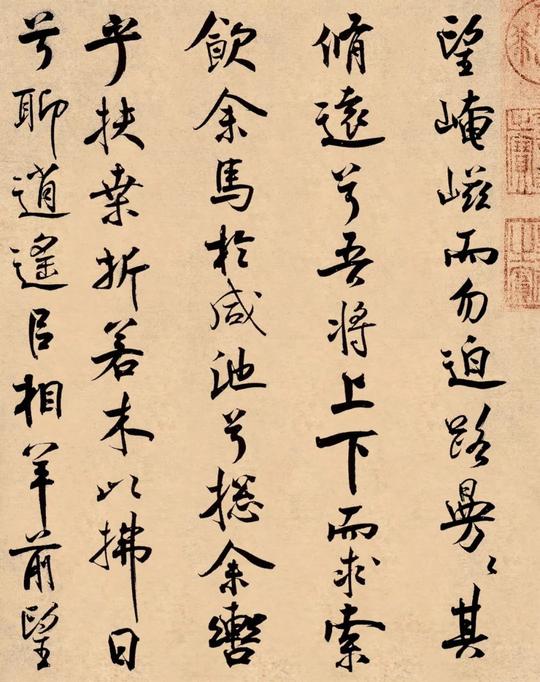 望崦嵫而勿迫路曼〻其
脩遠兮吾將上下而求索
飲余馬於咸池兮摠余轡
乎扶桒折若木以拂日
兮聊逍遙㠯相羊前望